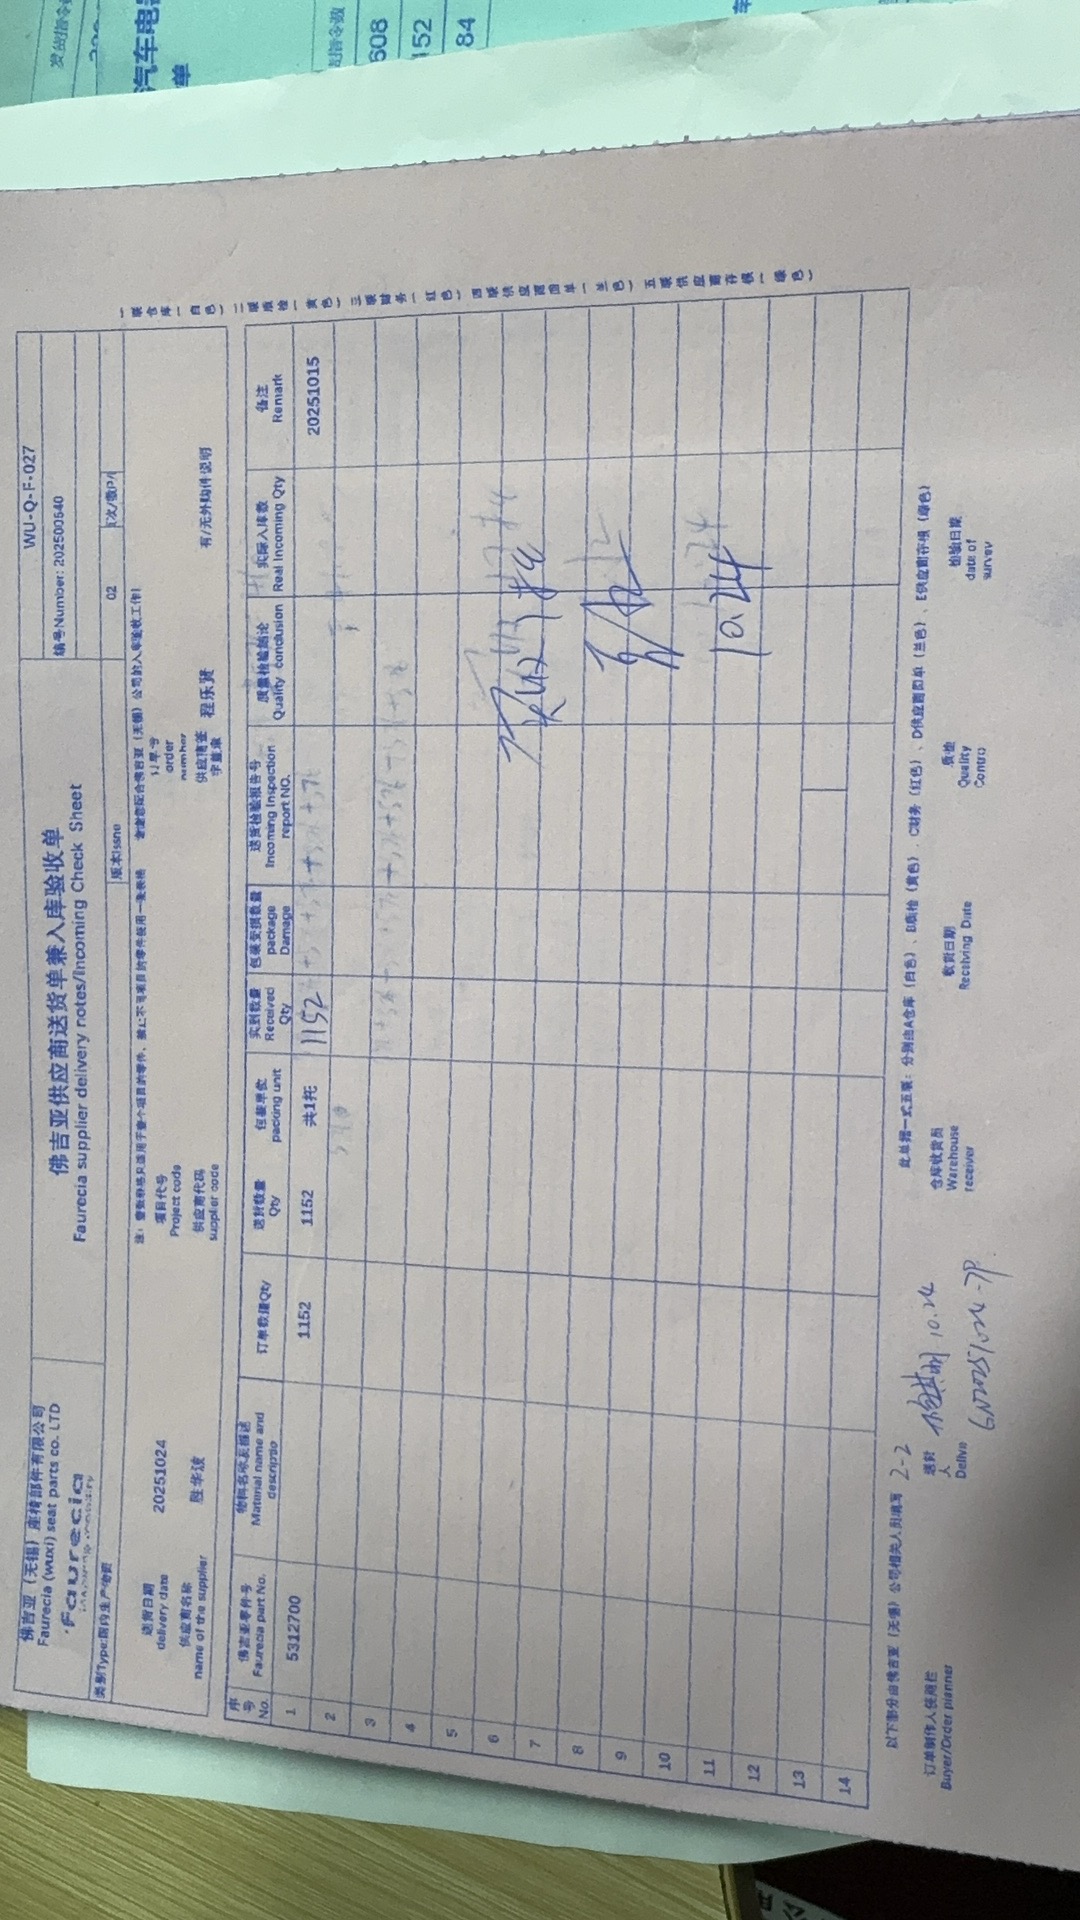 佛吉亚（无锡）座椅部件有限公司
Faurecia (wuxi) seat parts co. LTD
faurecia
佛吉亚供应商送货单兼入库验收单
Faurecia supplier delivery notes/Incoming Check Sheet
WU-Q-F-027
编号Number: 202500640
类别Type:国内生产物资
版本Issne
02
页次/数P/
注：整张表格只适用于整个项目的零件，禁止不同项目的零件使用一张表格
谢谢您配合佛吉亚（无锡）公司的入库验收工作！
送货日期
delivery date
20251024
项目代号
Project code
订单号
order
number
供应商名称
name of the supplier
胜华波
供应商代码
supplier code
供应商签
字盖章
程乐贤
有/无外购件说明
序号 No.
佛吉亚零件号 Faurecia part No.
物料名称及描述 Material name and descriptio
订单数量Qty
送货数量 Qty
包装单位 packing unit
实到数量 Received Qty
包装受损数量 package Damage
送货检验报告号 Incoming Inspection report NO.
质量检验结论 Quality conclusion
实际入库数 Real Incoming Qty
备注 Remark
1 5312700 1152 1152 共1托 1152 20251015
2
3
4
5
6
7
8
9
10
11
12
13
14
10.24
一联仓库（白色）二联质检（黄色）三联财务（红色）四联供应商回单（兰色）五联供应商存根（绿色）
以下部分由佛吉亚（无锡）公司相关人员填写
2-2
此单据一式五联：分别由A仓库（白色）、B质检（黄色）、C财务（红色）、D供应商回单（兰色）、E供应商存根（绿色）
订单制作人使用栏
Buyer/Order planner
送货
人
Delive
10.24
GN20251024-7P
仓库收货员
Warehouse
receiver
收货日期
Receiving Date
质检
Quality
Contro
检验日期
date of
survey
发货指令
汽车电器
单
指令数
608
152
84